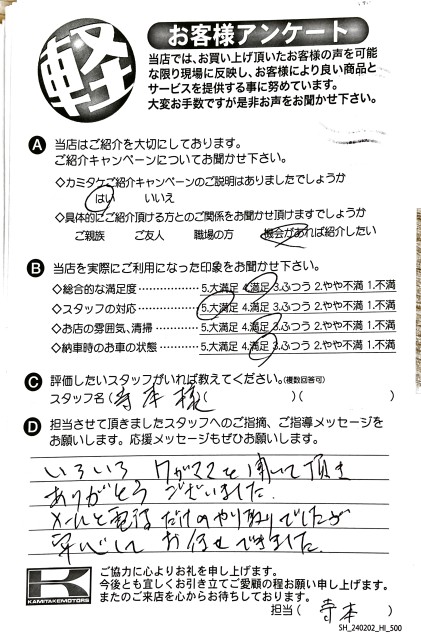 軽
お客様アンケート
当店では、お買い上げ頂いたお客様の声を可能
な限り現場に反映し、お客様により良い商品と
サービスを提供する事に努めています。
大変お手数ですが是非お声をお聞かせ下さい。
A 当店はご紹介を大切にしております。
ご紹介キャンペーンについてお聞かせ下さい。
◇カミタケご紹介キャンペーンのご説明はありましたでしょうか
はい いいえ
◇具体的にご紹介頂ける方とのご関係をお聞かせ頂けますでしょうか
ご親族 ご友人 職場の方 機会があれば紹介したい
B 当店を実際にご利用になった印象をお聞かせ下さい。
◇総合的な満足度 5.大満足 4.満足 3.ふつう 2.やや不満 1.不満
◇スタッフの対応 5.大満足 4.満足 3.ふつう 2.やや不満 1.不満
◇お店の雰囲気、清掃 5.大満足 4.満足 3.ふつう 2.やや不満 1.不満
◇納車時のお車の状態 5.大満足 4.満足 3.ふつう 2.やや不満 1.不満
C 評価したいスタッフがいれば教えてください。(複数回答可)
スタッフ名(寺本様)( )( )
D 担当させて頂きましたスタッフへのご指摘、ご指導メッセージを
お願いします。応援メッセージもぜひお願いします。
いろいろ ワガママを聞いて頂き
ありがとう ございました.
メールと電話だけのやり取りでしたが
安心して お任せできました.
K KAMITAKEMOTORS
ご協力に心よりお礼を申し上げます。
今後とも宜しくお引き立てご愛顧の程お願い申し上げます。
またのご来店を心からお待ちしております。
担当(寺本)
SH_240202_HI_500